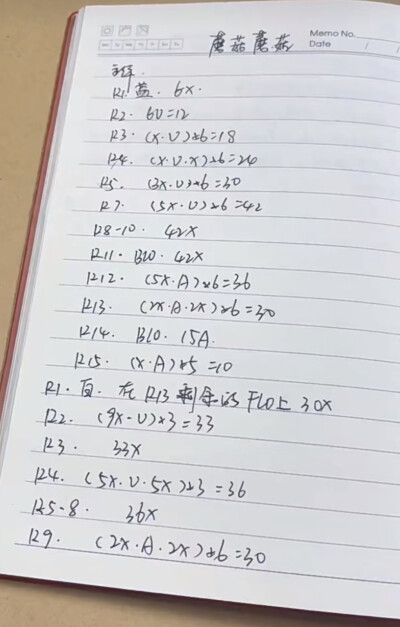 蘑菇蘑菇
Memo No.
Date / /
R1. 蓝. 6X.
R2. 6V=12
R3. (X.V)*6=18
R4. (X.V.X)*6=24
R5. (3X.V)*6=30
R7. (5X.V)*6=42
R8-10. 42X
R11. BLO. 42X
R12. (5X.A)*6=36
R13. (2X.A.2X)*6=30
R14. BLO. 15A.
R15. (X.A)*5=10
R1. 白. 在R13剩余的FLO上 30X
R2. (9X-V)*3=33
R3. 33X
R4. (5X.V.5X)*3=36
R5-8. 36X
R9. (2X.A.2X)*6=30